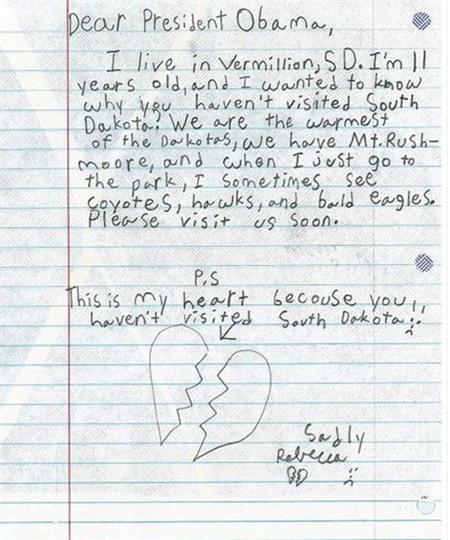 Dear President Obama,
I live in Vermillion, SD. I'm 11
years old, and I wanted to know
why you haven't visited South
Dakota? We are the warmest
of the Dakotas, we have Mt. Rush-
moore, and when I just go to
the park, I sometimes see
coyotes, hawks, and bald eagles.
Please visit us soon.
P.S
This is my heart becouse you
haven't visited South Dakota
Sadly
Rebecca